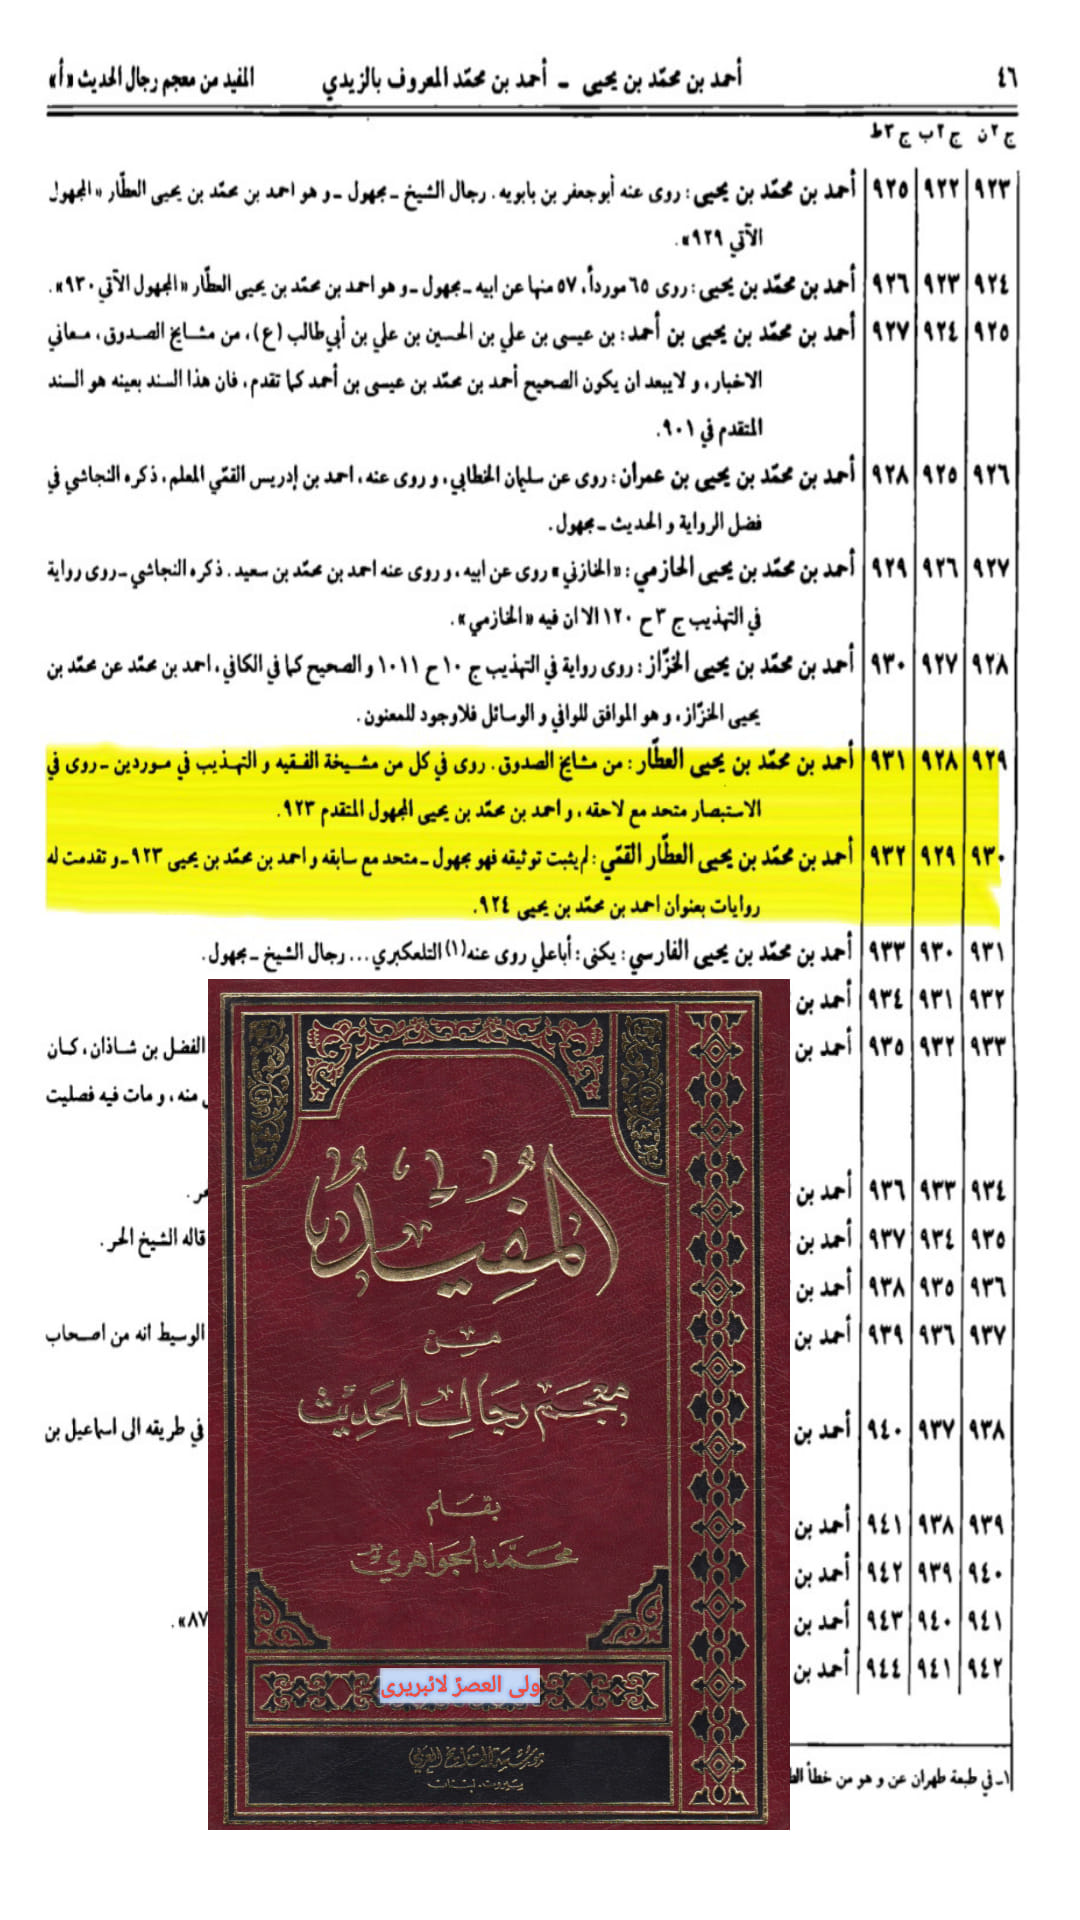 ٤٦ أحمد بن محمّد بن يحيى ـ أحمد بن محمّد المعروف بالزيدي المفيد من معجم رجال الحديث «أ»
ج ٢ ن ج ٢ ب ج ٣ ط
٩٢٣ ٩٢٢ ٩٢٥ أحمد بن محمّد بن يحيى : روى عنه أبوجعفر بن بابويه . رجال الشيخ ـ مجهول ـ و هو احمد بن محمّد بن يحيى العطّار «المجهول
الآتي ٩٢٩» .
٩٢٤ ٩٢٣ ٩٢٦ أحمد بن محمّد بن يحيى : روى ٦٥ مورداً ، ٥٧ منها عن ابيه ـ مجهول ـ و هو احمد بن محمّد بن يحيى العطّار «المجهول الآتي ٩٣٠» .
٩٢٥ ٩٢٤ ٩٢٧ أحمد بن محمّد بن يحيى بن أحمد : بن عيسى بن علي بن الحسين بن علي بن أبي طالب (ع) ، من مشايخ الصدوق ، معاني
الاخبار ، و لا يبعد ان يكون الصحيح أحمد بن محمّد بن عيسى بن أحمد كما تقدم ، فان هذا السند بعينه هو السند
المتقدم في ٩٠١ .
٩٢٦ ٩٢٥ ٩٢٨ أحمد بن محمّد بن يحيى بن عمران : روى عن سليمان الخطابي ، و روى عنه ، احمد بن إدريس القمّي المعلم ، ذكره النجاشي في
فضل الرواية و الحديث ـ مجهول .
٩٢٧ ٩٢٦ ٩٢٩ أحمد بن محمّد بن يحيى الحازمي : «الخازني» روى عن ابيه ، و روى عنه احمد بن محمّد بن سعيد . ذكره النجاشي ـ روى رواية
في التهذيب ج ٣ ح ١٢٠ الا ان فيه «الخازمي» .
٩٢٨ ٩٢٧ ٩٣٠ أحمد بن محمّد بن يحيى الخزّاز : روى رواية في التهذيب ج ١٠ ح ١٠١١ و الصحيح كما في الكافي ، احمد بن محمّد عن محمّد بن
يحيى الخزّاز ، و هو الموافق للوافي و الوسائل فلاوجود للمعنون .
٩٢٩ ٩٢٨ ٩٣١ أحمد بن محمّد بن يحيى العطّار : من مشايخ الصدوق . روى في كل من مشيخة الفقيه و التهذيب في موردين ـ روى في
الاستبصار متحد مع لاحقه ، و احمد بن محمّد بن يحيى المجهول المتقدم ٩٢٣ .
٩٣٠ ٩٢٩ ٩٣٢ أحمد بن محمّد بن يحيى العطّار القمّي : لم يثبت توثيقه فهو مجهول ـ متحد مع سابقه و احمد بن محمّد بن يحيى ٩٢٣ ـ و تقدمت له
روايات بعنوان احمد بن محمّد بن يحيى ٩٢٤ .
٩٣١ ٩٣٠ ٩٣٣ أحمد بن محمّد بن يحيى الفارسي : يكنى : أباعلي روى عنه (١) التلعكبري ... رجال الشيخ ـ مجهول .
٩٣٢ ٩٣١ ٩٣٤ أحمد بن
٩٣٣ ٩٣٢ ٩٣٥ أحمد بن الفضل بن شاذان ، كان
منه ، و مات فيه فصليت
٩٣٤ ٩٣٣ ٩٣٦ أحمد بن
٩٣٥ ٩٣٤ ٩٣٧ أحمد بن قاله الشيخ الحر .
٩٣٦ ٩٣٥ ٩٣٨ أحمد بن
٩٣٧ ٩٣٦ ٩٣٩ أحمد بن الوسيط انه من اصحاب
٩٣٨ ٩٣٧ ٩٤٠ أحمد بن في طريقه الى اسماعيل بن
٩٣٩ ٩٣٨ ٩٤١ أحمد بن
٩٤٠ ٩٣٩ ٩٤٢ أحمد بن
٩٤١ ٩٤٠ ٩٤٣ أحمد بن ٨٧» .
٩٤٢ ٩٤١ ٩٤٤ أحمد بن
١ـ في طبعة طهران عن و هو من خطأ
المُفيد
من
معجم رجال الحديث
بقلم
محمد الجواهري
ولی العصرؑ لائبریری
مؤسسة التاريخ العربي
بيروت - لبنان